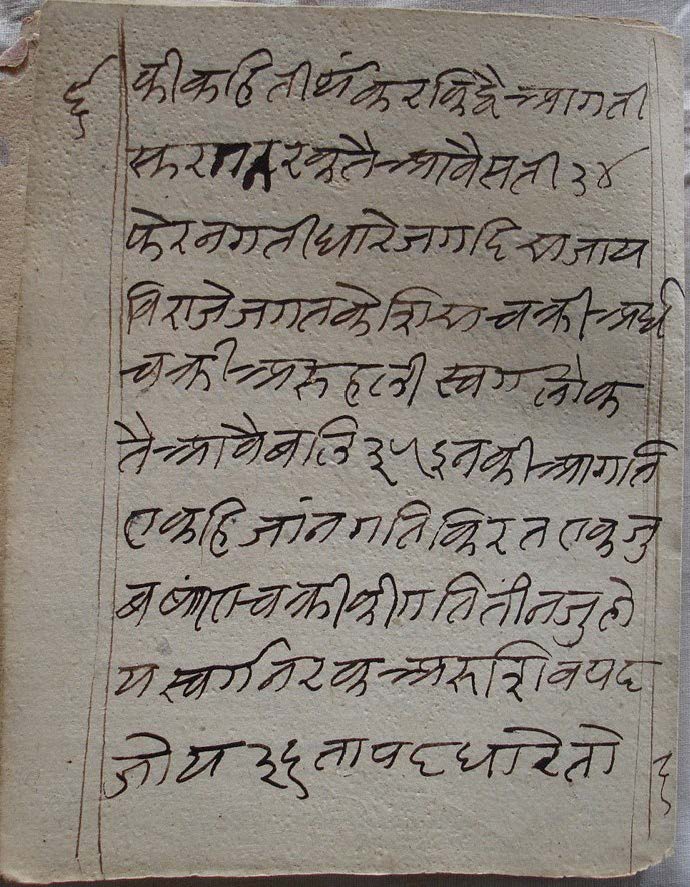 ६
की कहि तीर्थंकर की है आगती
सुर नरक तै आवै सती ३४
फेर न गती धारे जगदिस जाय
विराजे जगत के शिस चक्री अर्ध
चक्री अरु हली स्वग लोक
तै आवै बलि ३५ इनकी आगति
एकहि जांन गति कि रत एक जु
बषांत चक्री की गति तीन जु हो
य स्वर्ग नरक अरु शिव पद
जोय ३६ ता पद धारे तो
६